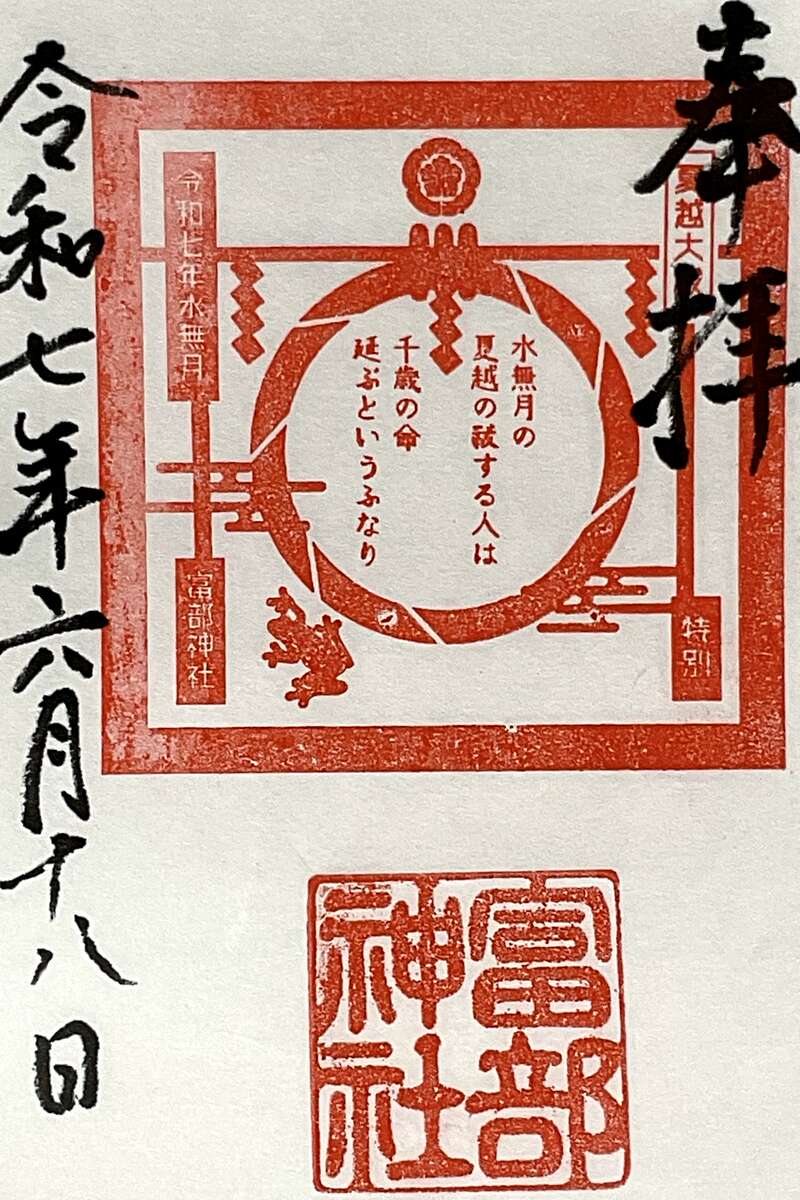 奉拝
夏越大
特別
水無月の
夏越の祓する人は
千歳の命
延ぶというふなり
令和七年水無月
富部神社
令和七年六月十八日
富部
神社